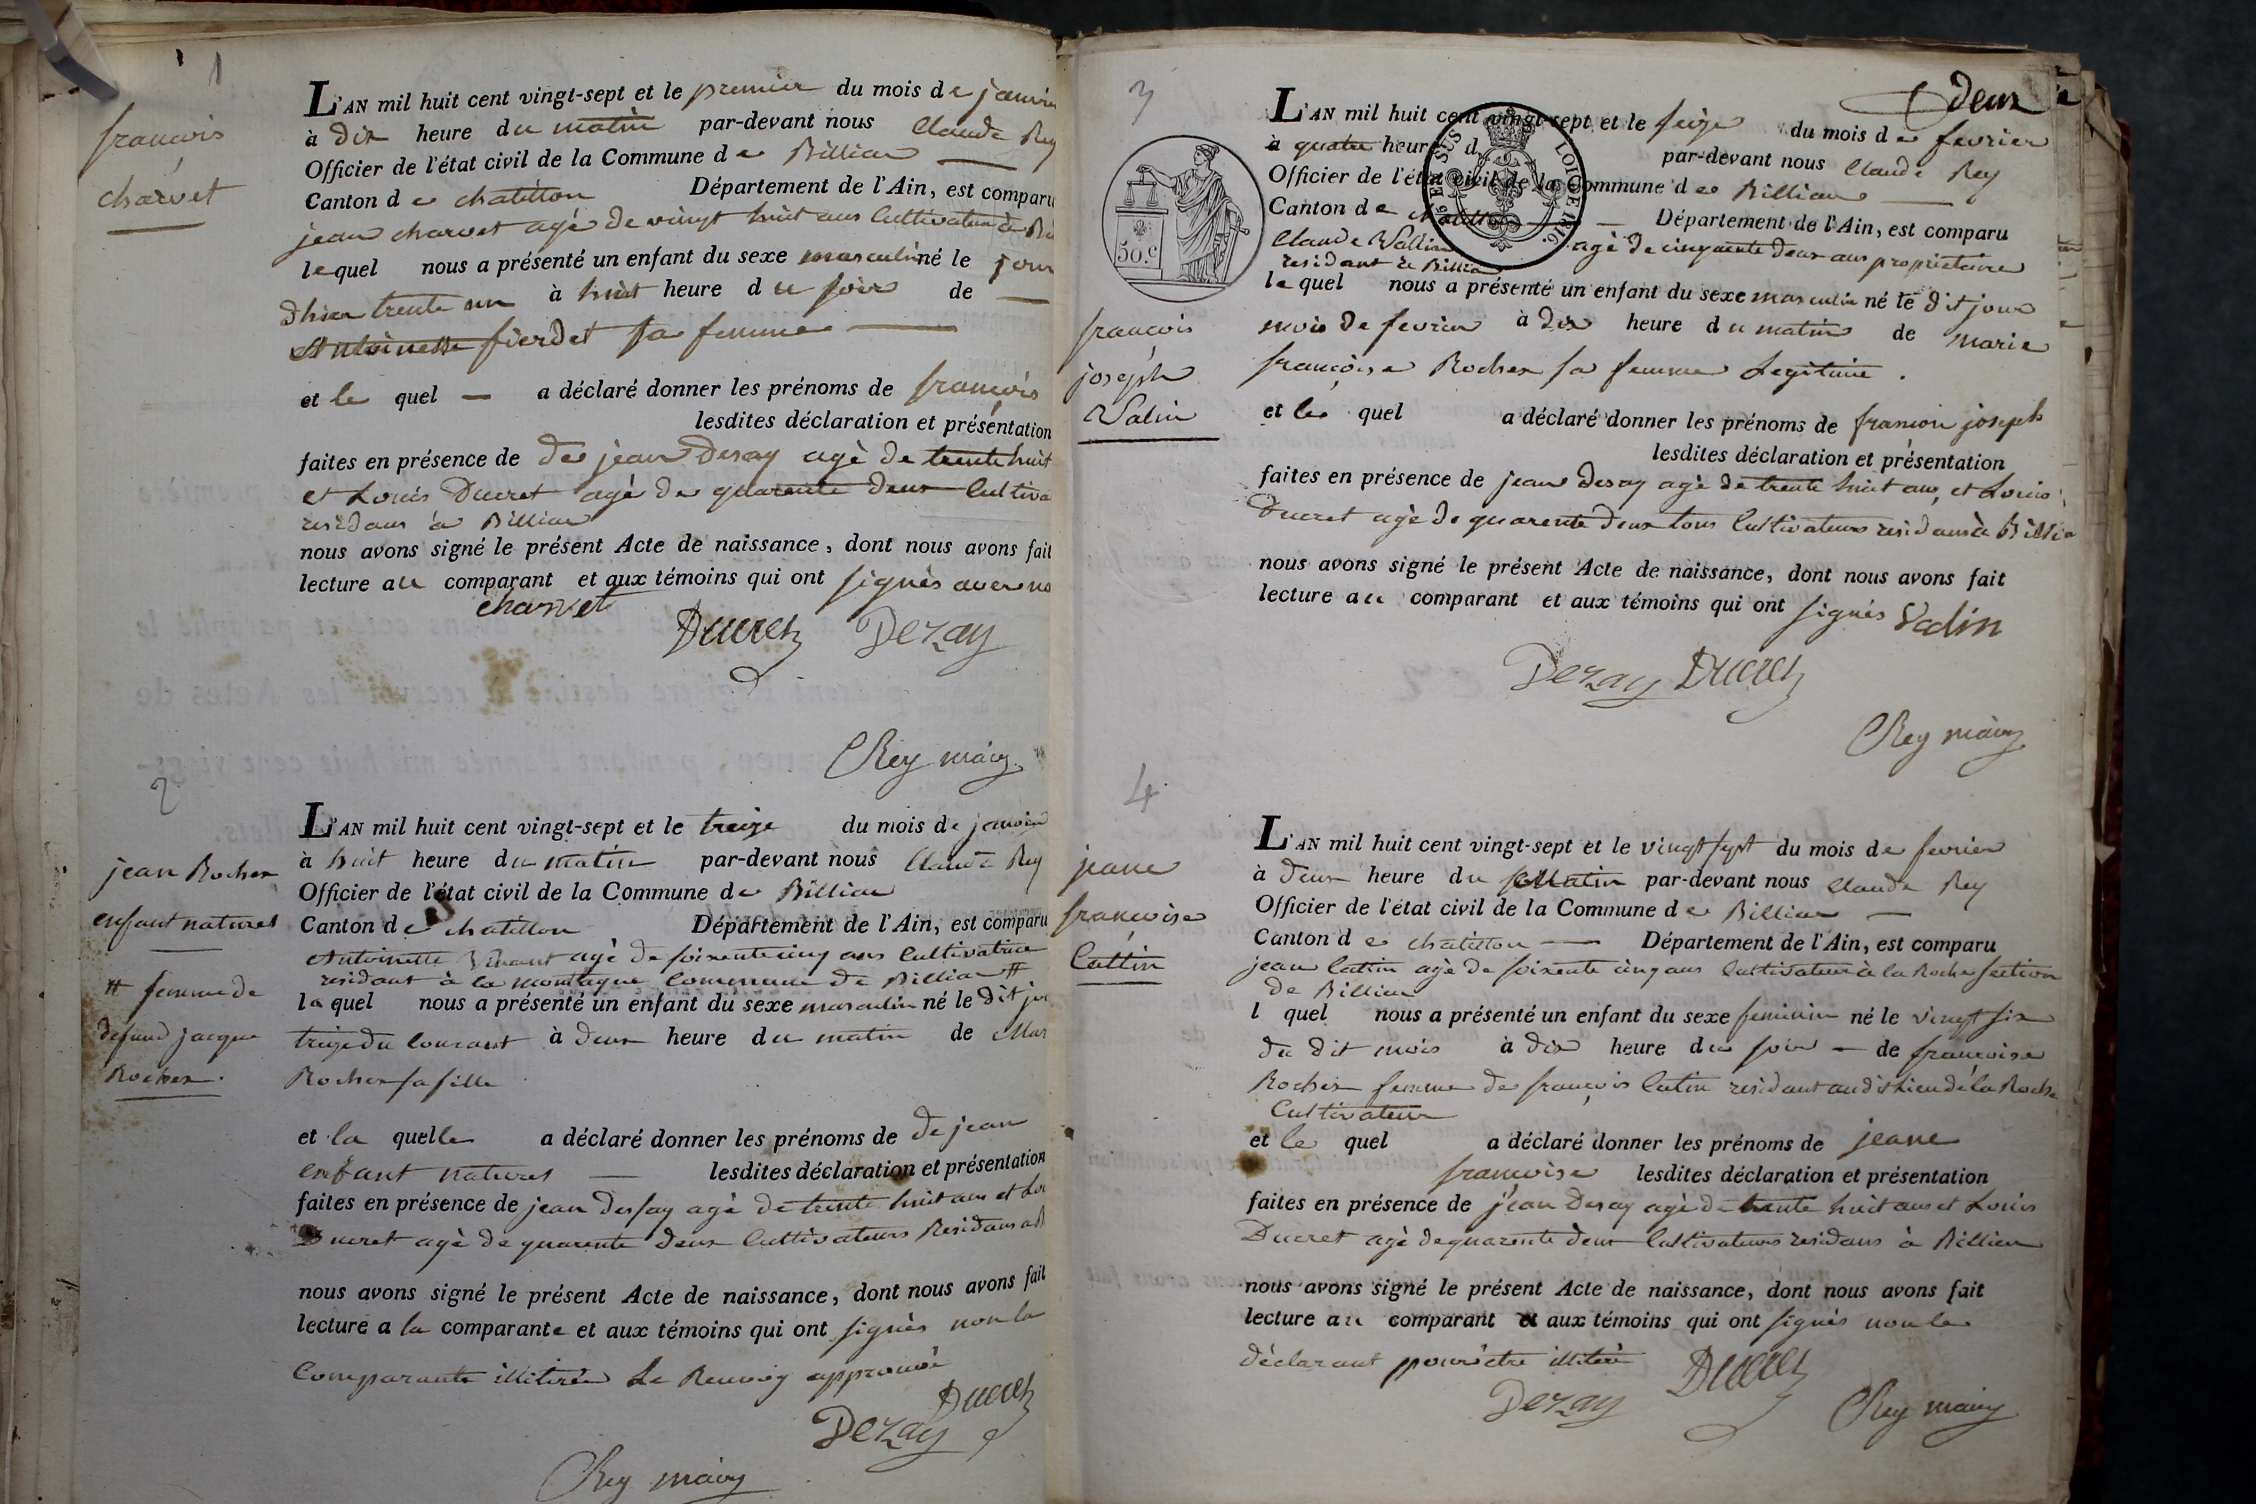 1
françois
charvet
L'AN mil huit cent vingt-sept et le premier du mois de janvie
à dix heure du matin par-devant nous Claude Rey
Officier de l'état civil de la Commune de Billiau
Canton de chatillon Département de l'Ain, est comparu
jean charvet agé de vingt huit ans Cultivateur à Bi
lequel nous a présenté un enfant du sexe masculin né le jour
dhier trente un à huit heure du soir de
Antoinette fierdet sa femme
et le quel a déclaré donner les prénoms de françois
lesdites déclaration et présentation
faites en présence de de jean Desay agè de trente huit
et Louis Ducret agè de quarente deux Cultiva
residans à Billiau
nous avons signé le présent Acte de naissance, dont nous avons fait
lecture au comparant et aux témoins qui ont signès avec no
charvet
Ducret Dezay
Rey maire
2
jean Rocher
enfant naturel
# femme de
defund jacque
Rocher.
L'AN mil huit cent vingt-sept et le treize du mois de janvier
à huit heure du matin par-devant nous Claude Rey
Officier de l'état civil de la Commune de Billiau
Canton de chatillon Département de l'Ain, est comparu
Antoinette agè de soixente cinq ans Cultivatrice
residant à la montagne Commune de Billiau #
la quel nous a présenté un enfant du sexe masculin né le dit jou
treize du Courant à deux heure du matin de Mar
Rocher sa fille
et la quelle a déclaré donner les prénoms de de jean
enfant naturel lesdites déclaration et présentation
faites en présence de jean dessay agè de trente huit ans et Lou
Ducret agè de quarente deux Cultivateurs Residans a B
nous avons signé le présent Acte de naissance, dont nous avons fait
lecture a la comparante et aux témoins qui ont signès non la
Comparante illitirée Le Renvoy approuvé
Ducret
Dezay
Rey maire
deux
3
50.c
françois
joseph
Valin
L'AN mil huit cent vingt-sept et le seize du mois de fevrier
à quatre heure d par-devant nous Claude Rey
Officier de l'état civil de la Commune de Billiau
Canton de chatillon Département de l'Ain, est comparu
Claude Vallin agè de cinquente deux ans propriétaire
residant à Billia
le quel nous a présenté un enfant du sexe masculin né le dit jour
mois de fevrier à dix heure du matin de marie
françoise Rocher sa femme Legitime.
et le quel a déclaré donner les prénoms de françois joseph
lesdites déclaration et présentation
faites en présence de jean Desay agè de trente huit ans, et Louis
Ducret agè de quarente deux tous Cultivateurs residans à Billia
nous avons signé le présent Acte de naissance, dont nous avons fait
lecture au comparant et aux témoins qui ont signès Valin
Dezay Ducret
Rey maire
4
jeane
francoise
Cattin
L'AN mil huit cent vingt-sept et le vingt sept du mois de fevrier
à deux heure du matin par-devant nous Claude Rey
Officier de l'état civil de la Commune de Billiau
Canton de chatillon Département de l'Ain, est comparu
jean Catin agè de soixente cinq ans Cultivateur à la Roche section
de Billiau
l quel nous a présenté un enfant du sexe feminin né le vingt six
du dit mois à dix heure du soir de francoise
Rocher femme de françois Catin residant au dit Lieu de la Roche
Cultivateur
et le quel a déclaré donner les prénoms de jeane
francoise lesdites déclaration et présentation
faites en présence de jean Desay agè de trente huit ans et Louis
Ducret agè de quarente deux Cultivateurs residans à Billiau
nous avons signé le présent Acte de naissance, dont nous avons fait
lecture au comparant et aux témoins qui ont signès non le
déclarant pour être illitéré
Dezay Ducret
Rey maire